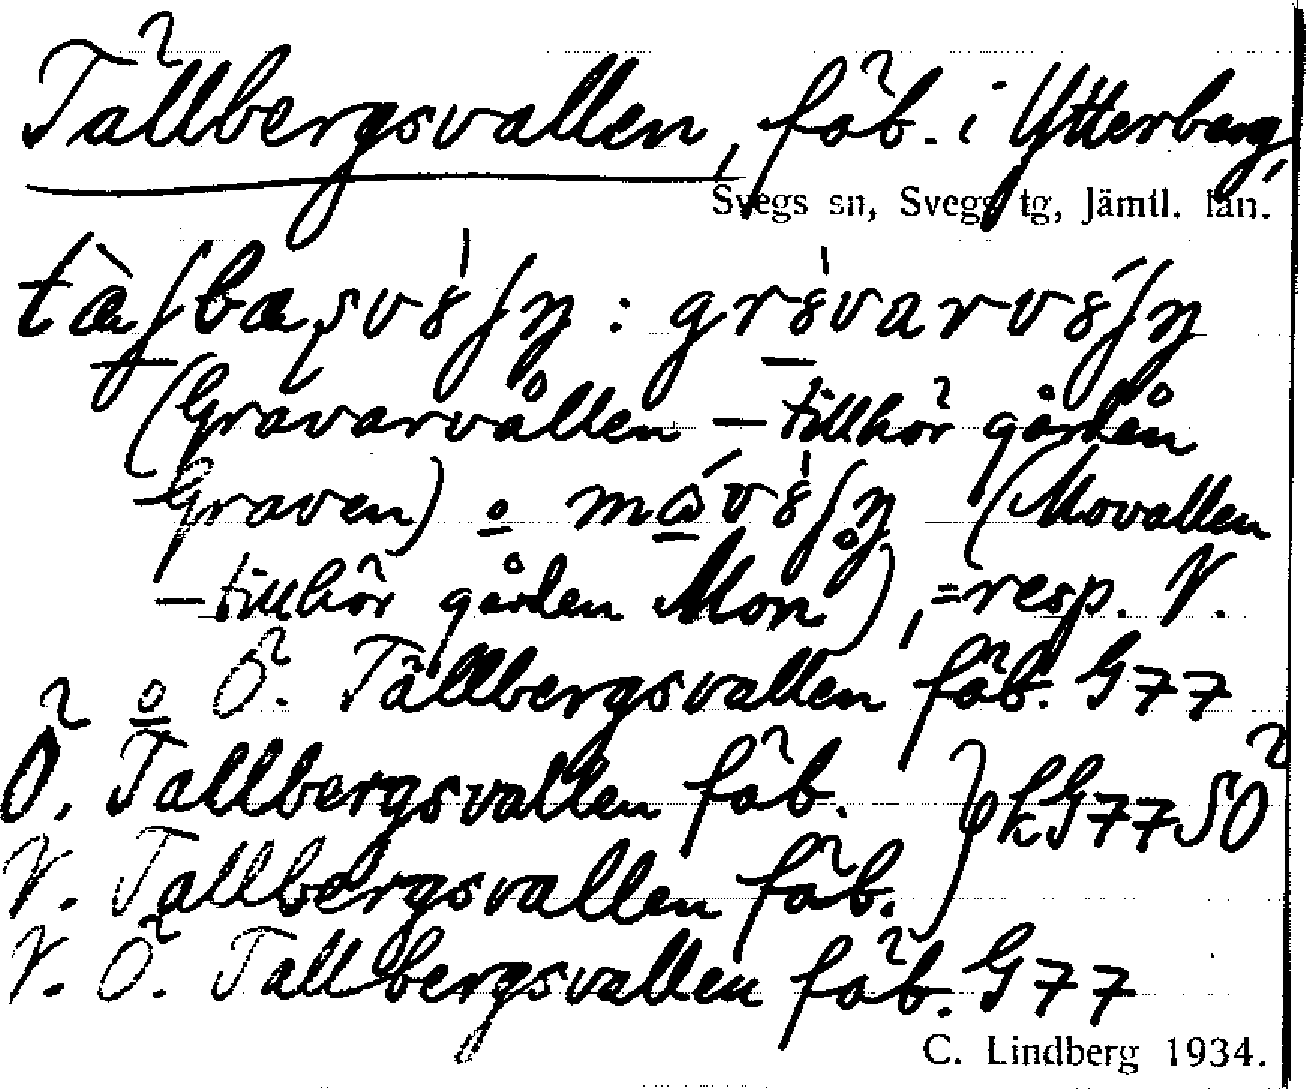 Tällbergsvallen, fäb. i Ytterberg,
Svegs sn, Svegs tg, Jämtl. län.
(Gravarvållen – tillhör gården
Graven) o (Movallen
– tillhör gården Mon), = resp. V.
o Ö. Tällbergsvallen fäb. G77
Ö. Tallbergsvallen fäb. } ekG77SÖ
V. Tallbergsvallen fäb.
V. Ö. Tallbergsvallen fäb. G77
C. Lindberg 1934.